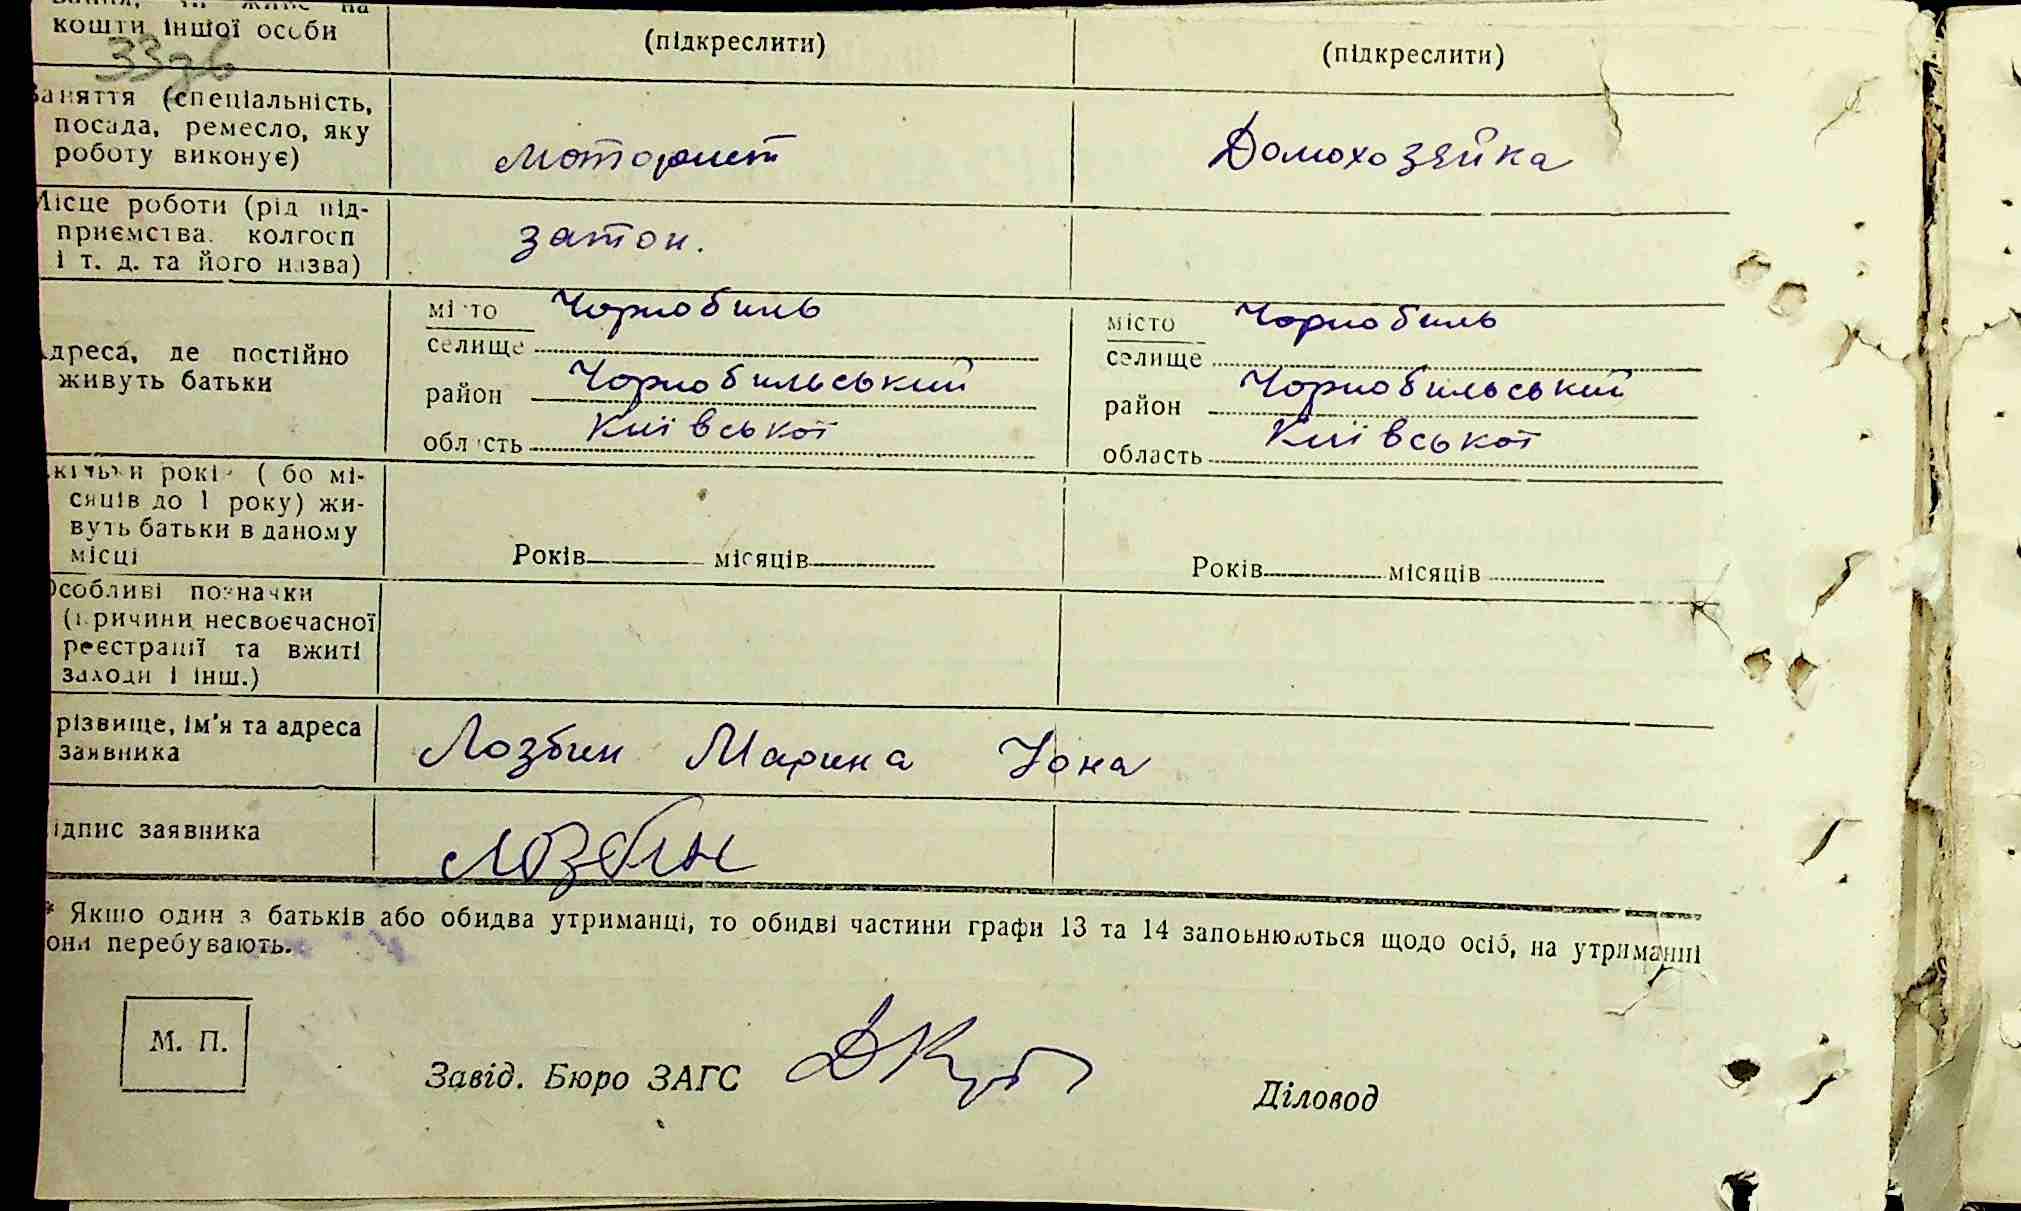 кошти іншої особи
(підкреслити) (підкреслити)
Заняття (спеціальність,
посада, ремесло, яку
роботу виконує)
моторист Домохозяйка
Місце роботи (рід під-
приємства, колгосп
і т. д. та його назва)
затон.
Адреса, де постійно
живуть батьки
місто Чорнобиль місто Чорнобиль
селище селище
район Чорнобильський район Чорнобильський
область Київської область Київської
Скільки років (або мі-
сяців до 1 року) жи-
вуть батьки в даному
місці
Років місяців Років місяців
Особливі позначки
(причини несвоєчасної
реєстрації та вжиті
заходи і інш.)
Прізвище, ім'я та адреса
заявника
Лозбин Марина Йона
Підпис заявника
Лозбин
* Якщо один з батьків або обидва утриманці, то обидві частини графи 13 та 14 заповнюються щодо осіб, на утриманні
вони перебувають.
М. П.
Завід. Бюро ЗАГС Діловод